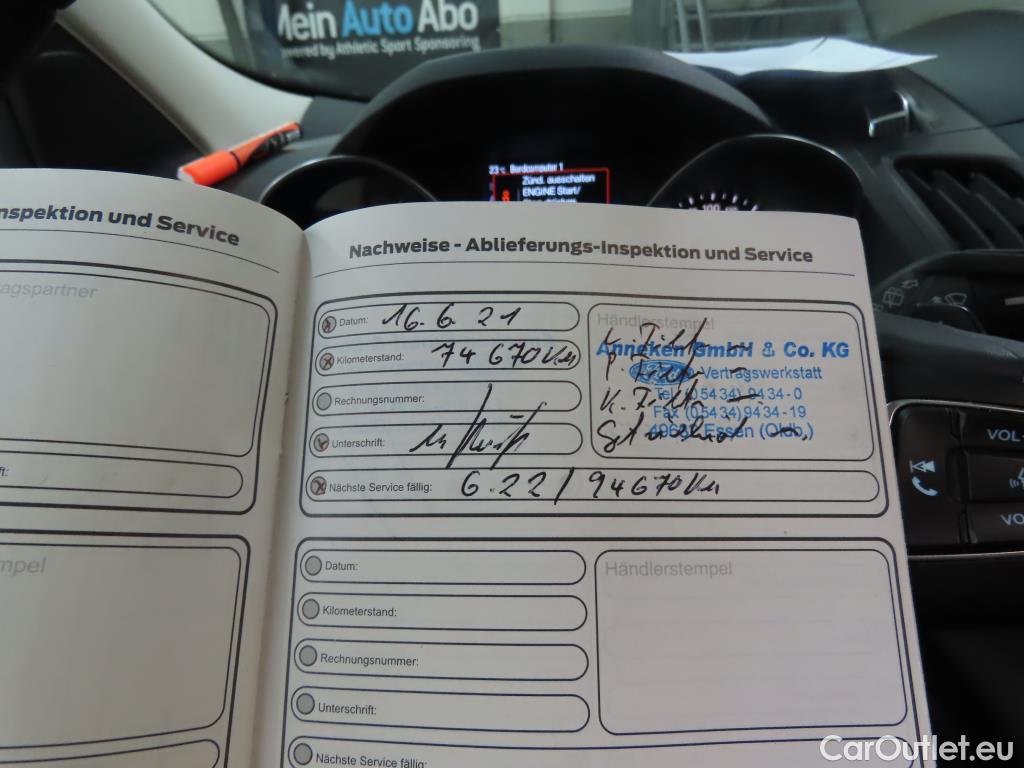 Mein Auto Abo
powered by Athletic Sport Sponsoring
23°C Bordcomputer 1
Zünd. ausschalten
ENGINE Start/
100
nspektion und Service
agspartner
ft:
mpel
Nachweise - Ablieferungs-Inspektion und Service
Datum: 16.6.21
Kilometerstand: 74 670 Km
Rechnungsnummer:
Unterschrift:
Nächste Service fällig: 6.22 / 94670 Km
Händlerstempel
Anneken GmbH & Co. KG
Vertragswerkstatt
Tel. (05434) 9434-0
Fax (05434) 9434-19
49632 Essen (Oldb.)
Datum:
Kilometerstand:
Rechnungsnummer:
Unterschrift:
Nächste Service fällig:
Händlerstempel
VOL-
VO
CarOutlet.eu